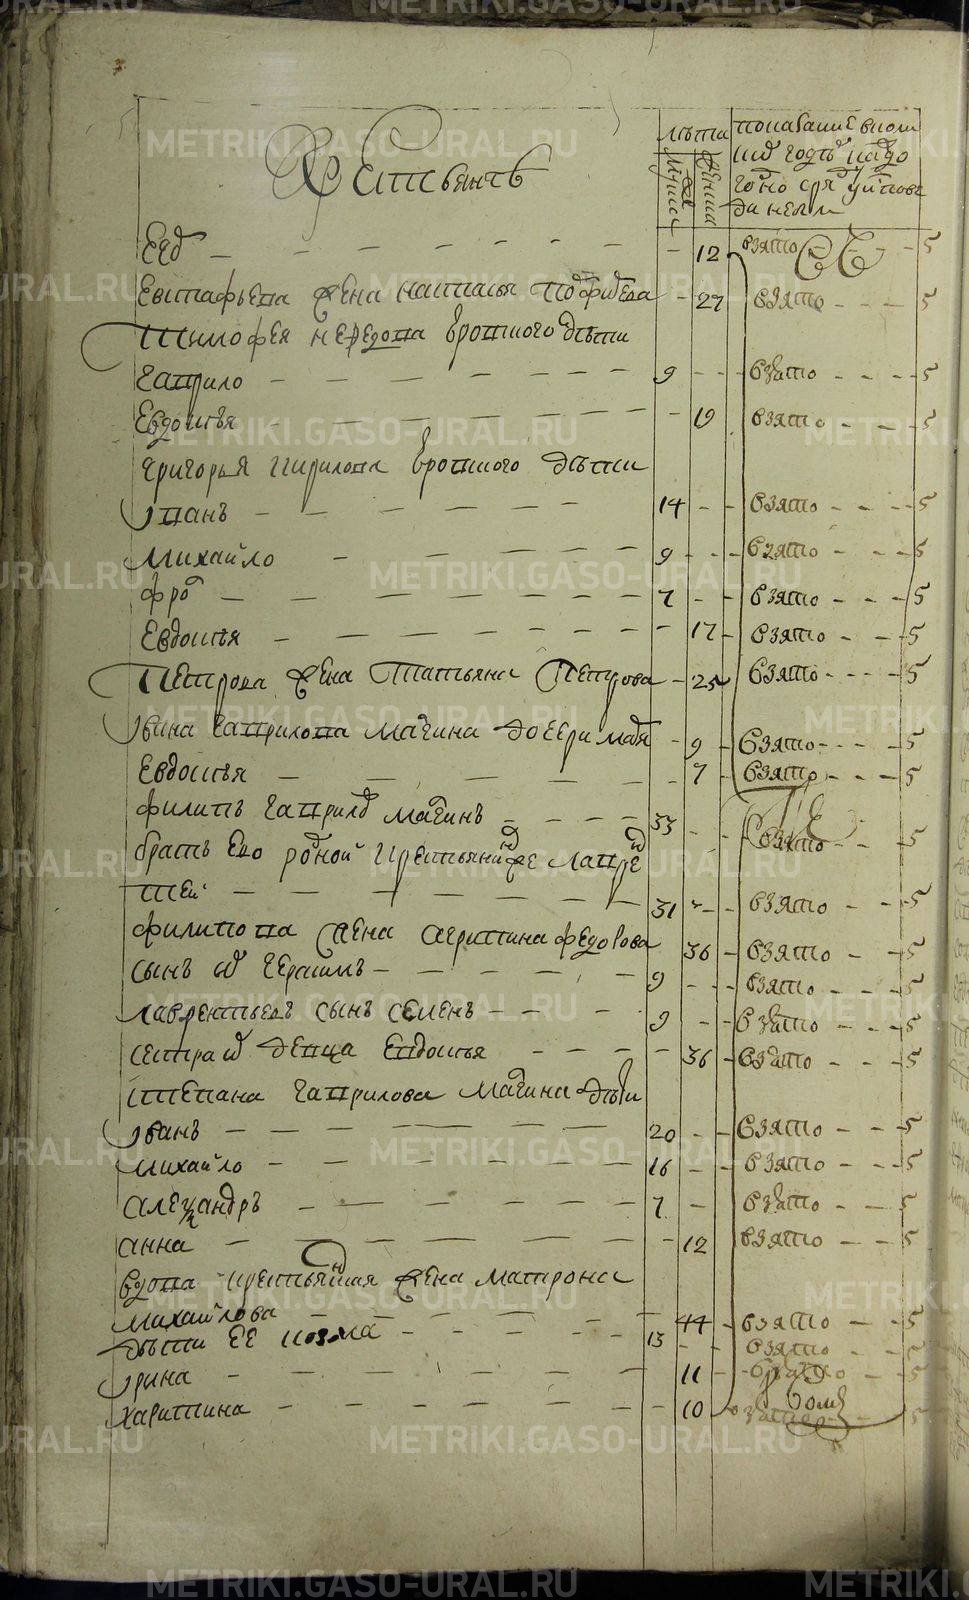 METRIKI.GASO-URAL.RU
Крестьянъ
лѣта
мужска
женска
12 взято 5
Евстафьева жена наталья 27 взято 5
тимофея нефедова кроткого дѣти
гаврило 9 взято 5
Евдокѣя 19 взято 5
григорья кирилова кроткого дѣти
Іванъ 14 взято 5
михайло 9 взято 5
фро 7 взято 5
Евдокѣя 17 взято 5
Петрова жена татьяна Петрова 25 взято 5
Івана гаврилова магина дочери 9 взято 5
Евдокѣя 7 взято 5
филипъ гаврилов магинъ 33 взято 5
братъ Его родной лавре
тей 31 взято 5
филипова жена агрипина федорова 36 взято 5
сынъ герасимъ 9 взято 5
лаврентьевъ сынъ семенъ 9 взято 5
сестра девица Евдокѣя 36 взято 5
степана гаврилова магина дѣти
Іванъ 20 взято 5
михайло 16 взято 5
алеѯандръ 7 взято 5
анна 12 взято 5
вдова крестьянская жена матрона
михайлова 44 взято 5
дѣти ЕЕ козма 13 взято 5
Ірина 11 взято 5
харитина 10 взято 5